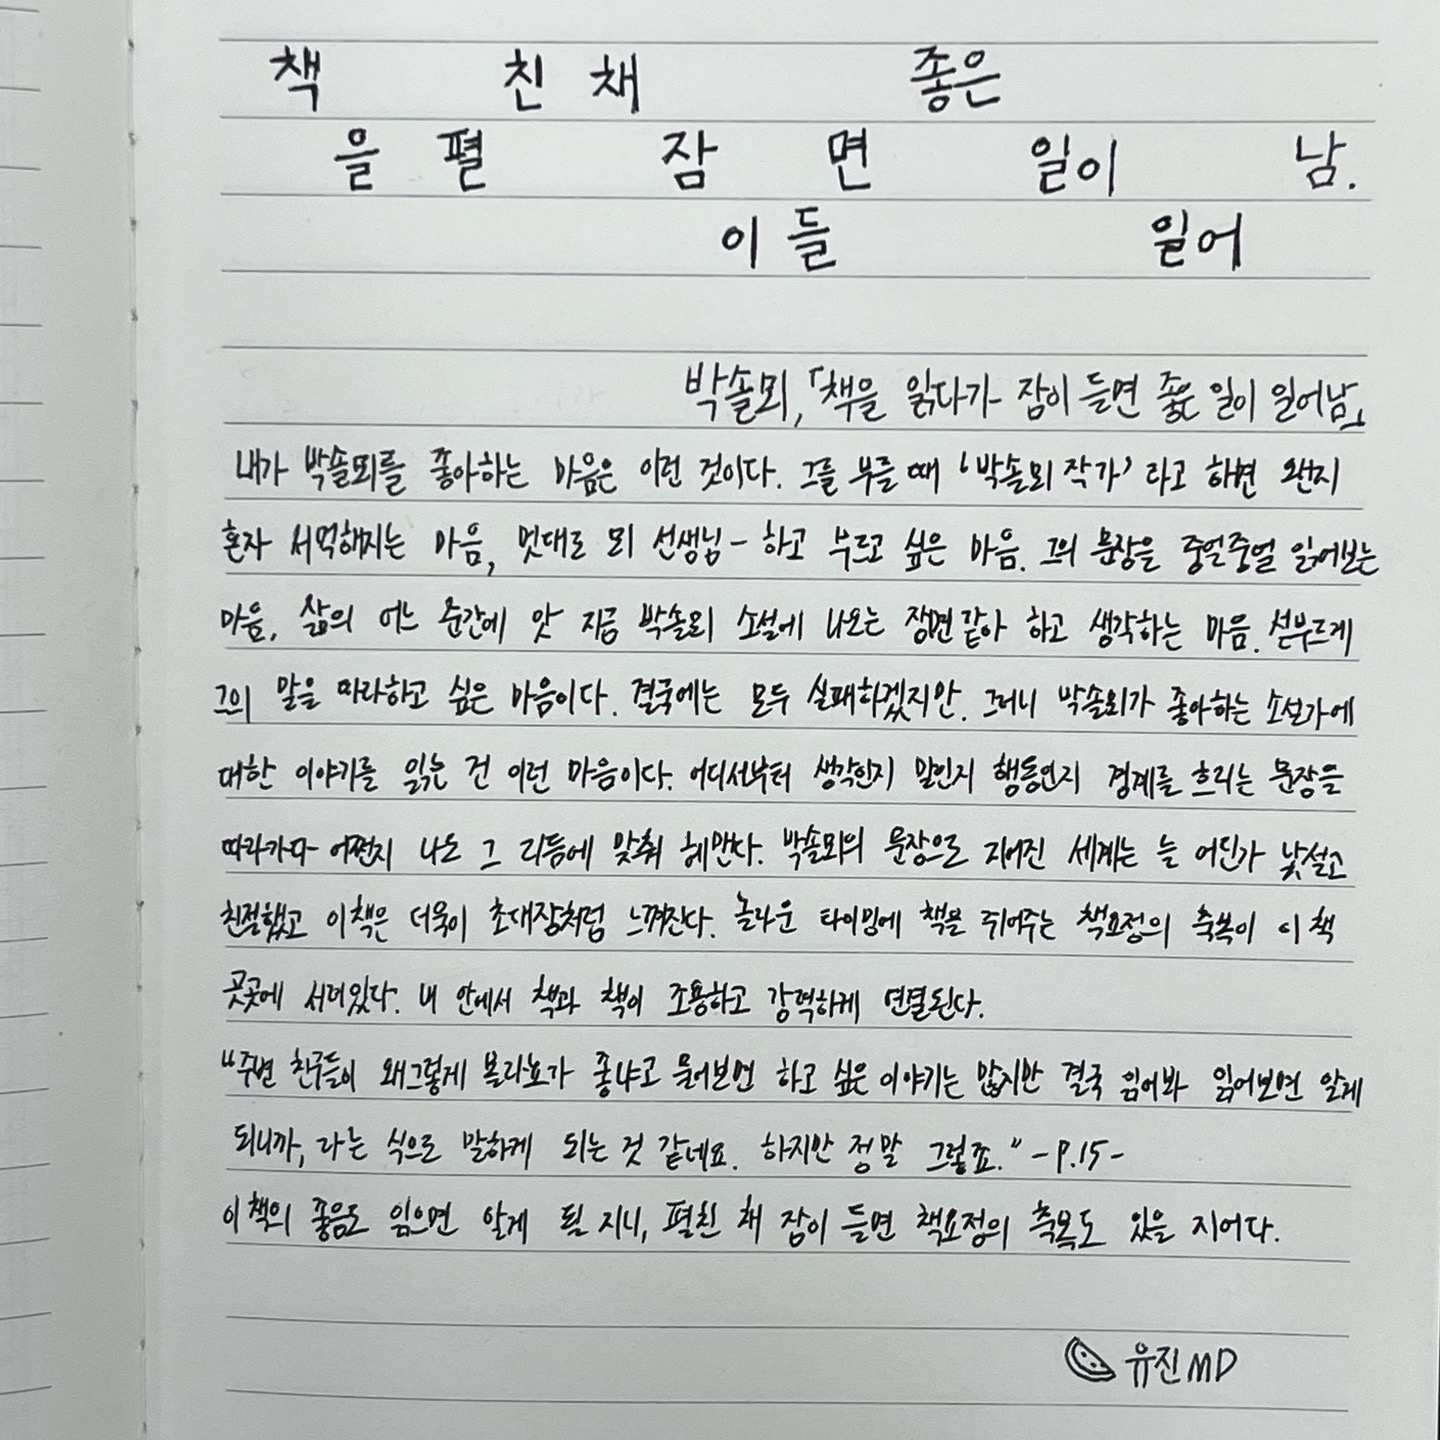 책 친 채 좋은
을 펼 잠 면 일이 남.
이 들 일어
박솔뫼, 「책을 읽다가 잠이 들면 좋은 일이 일어남」
내가 박솔뫼를 좋아하는 마음은 이런 것이다. 그를 부를 때 '박솔뫼 작가' 라고 하면 왠지
혼자 서먹해지는 마음, 멋대로 뫼 선생님- 하고 부르고 싶은 마음. 그의 문장을 중얼중얼 읽어보는
마음, 삶의 어느 순간에 앗 지금 박솔뫼 소설에 나오는 장면같아 하고 생각하는 마음. 섣부르게
그의 말을 따라하고 싶은 마음이다. 결국에는 모두 실패하겠지만. 그러니 박솔뫼가 좋아하는 소설가에
대한 이야기를 읽는 건 이런 마음이다. 어디서부터 생각인지 말인지 행동인지 경계를 흐리는 문장을
따라가다 어쩐지 나도 그 리듬에 맞춰 헤맨다. 박솔뫼의 문장으로 지어진 세계는 늘 어딘가 낯설고
친절했고 이 책은 더욱이 초대장처럼 느껴진다. 놀라운 타이밍에 책을 쥐어주는 책요정의 축복이 이 책
곳곳에 서려있다. 내 안에서 책과 책이 조용하고 강력하게 연결된다.
"주변 친구들이 왜그렇게 볼라뇨가 좋냐고 물어보면 하고 싶은 이야기는 많지만 결국 읽어봐 읽어보면 알게
되니까, 라는 식으로 말하게 되는 것 같네요. 하지만 정말 그렇죠." -P.15-
이 책의 좋음도 읽으면 알게 될 지니, 펼친 채 잠이 들면 책요정의 축복도 있을 지어다.
유진MD